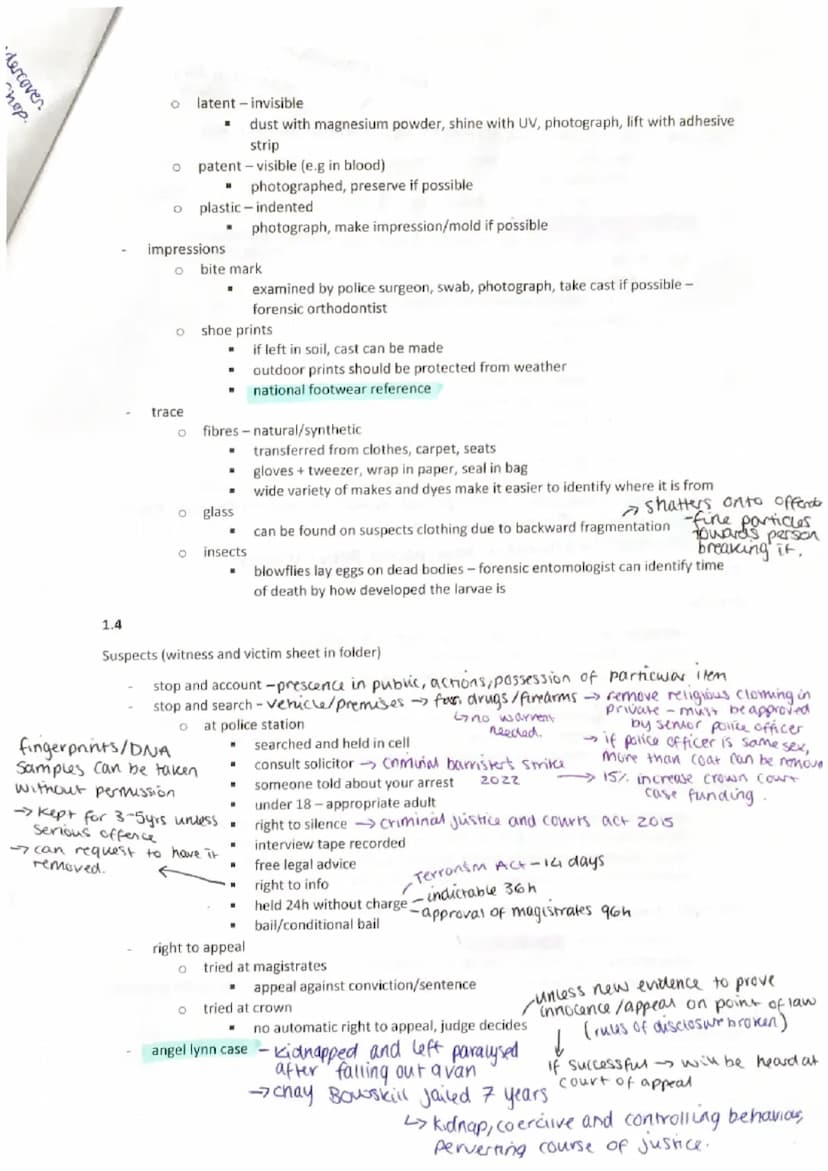 dercover
shop.
o latent – invisible
▪ dust with magnesium powder, shine with UV, photograph, lift with adhesive
strip
o patent – visible (e.g in blood)
▪ photographed, preserve if possible
o plastic – indented
▪ photograph, make impression/mold if possible
- impressions
o bite mark
▪ examined by police surgeon, swab, photograph, take cast if possible –
forensic orthodontist
o shoe prints
▪ if left in soil, cast can be made
▪ outdoor prints should be protected from weather
▪ national footwear reference
- trace
o fibres – natural/synthetic
▪ transferred from clothes, carpet, seats
▪ gloves + tweezer, wrap in paper, seal in bag
▪ wide variety of makes and dyes make it easier to identify where it is from
o glass
▪ can be found on suspects clothing due to backward fragmentation
→ shatters onto offende
-fine particles
towards person
breaking it.
o insects
▪ blowflies lay eggs on dead bodies – forensic entomologist can identify time
of death by how developed the larvae is
1.4
Suspects (witness and victim sheet in folder)
- stop and account – prescence in public, actions, possession of particular item
- stop and search - vehicle/premises → for drugs/firearms → remove religious clothing in
private – must be approved
by senior police officer
↳ no warrent
needed.
→ if police officer is same sex,
more than coat can be remove
o at police station
▪ searched and held in cell
▪ consult solicitor → criminal barristers strike
2022 → 15% increase crown court
case funding.
▪ someone told about your arrest
▪ under 18 – appropriate adult
▪ right to silence → criminal justice and courts act 2015
▪ interview tape recorded
▪ free legal advice
▪ right to info
fingerprints/DNA
samples can be taken
without permission
→ kept for 3-5yrs unless
serious offence
→ can request to have it
removed.
▪ held 24h without charge
Terrorism Act – 14 days
– indictable 36h
– approval of magistrates 96h
▪ bail/conditional bail
- right to appeal
o tried at magistrates
▪ appeal against conviction/sentence
o tried at crown
▪ no automatic right to appeal, judge decides
unless new evidence to prove
innocence/appeal on point of law
(rules of disclosure broken)
↓
if successful → will be heard at
court of appeal
- angel lynn case – kidnapped and left paralysed
after falling out a van
→ chay Bowskill jailed 7 years
↳ kidnap, coercive and controlling behaviour,
perverting course of justice.